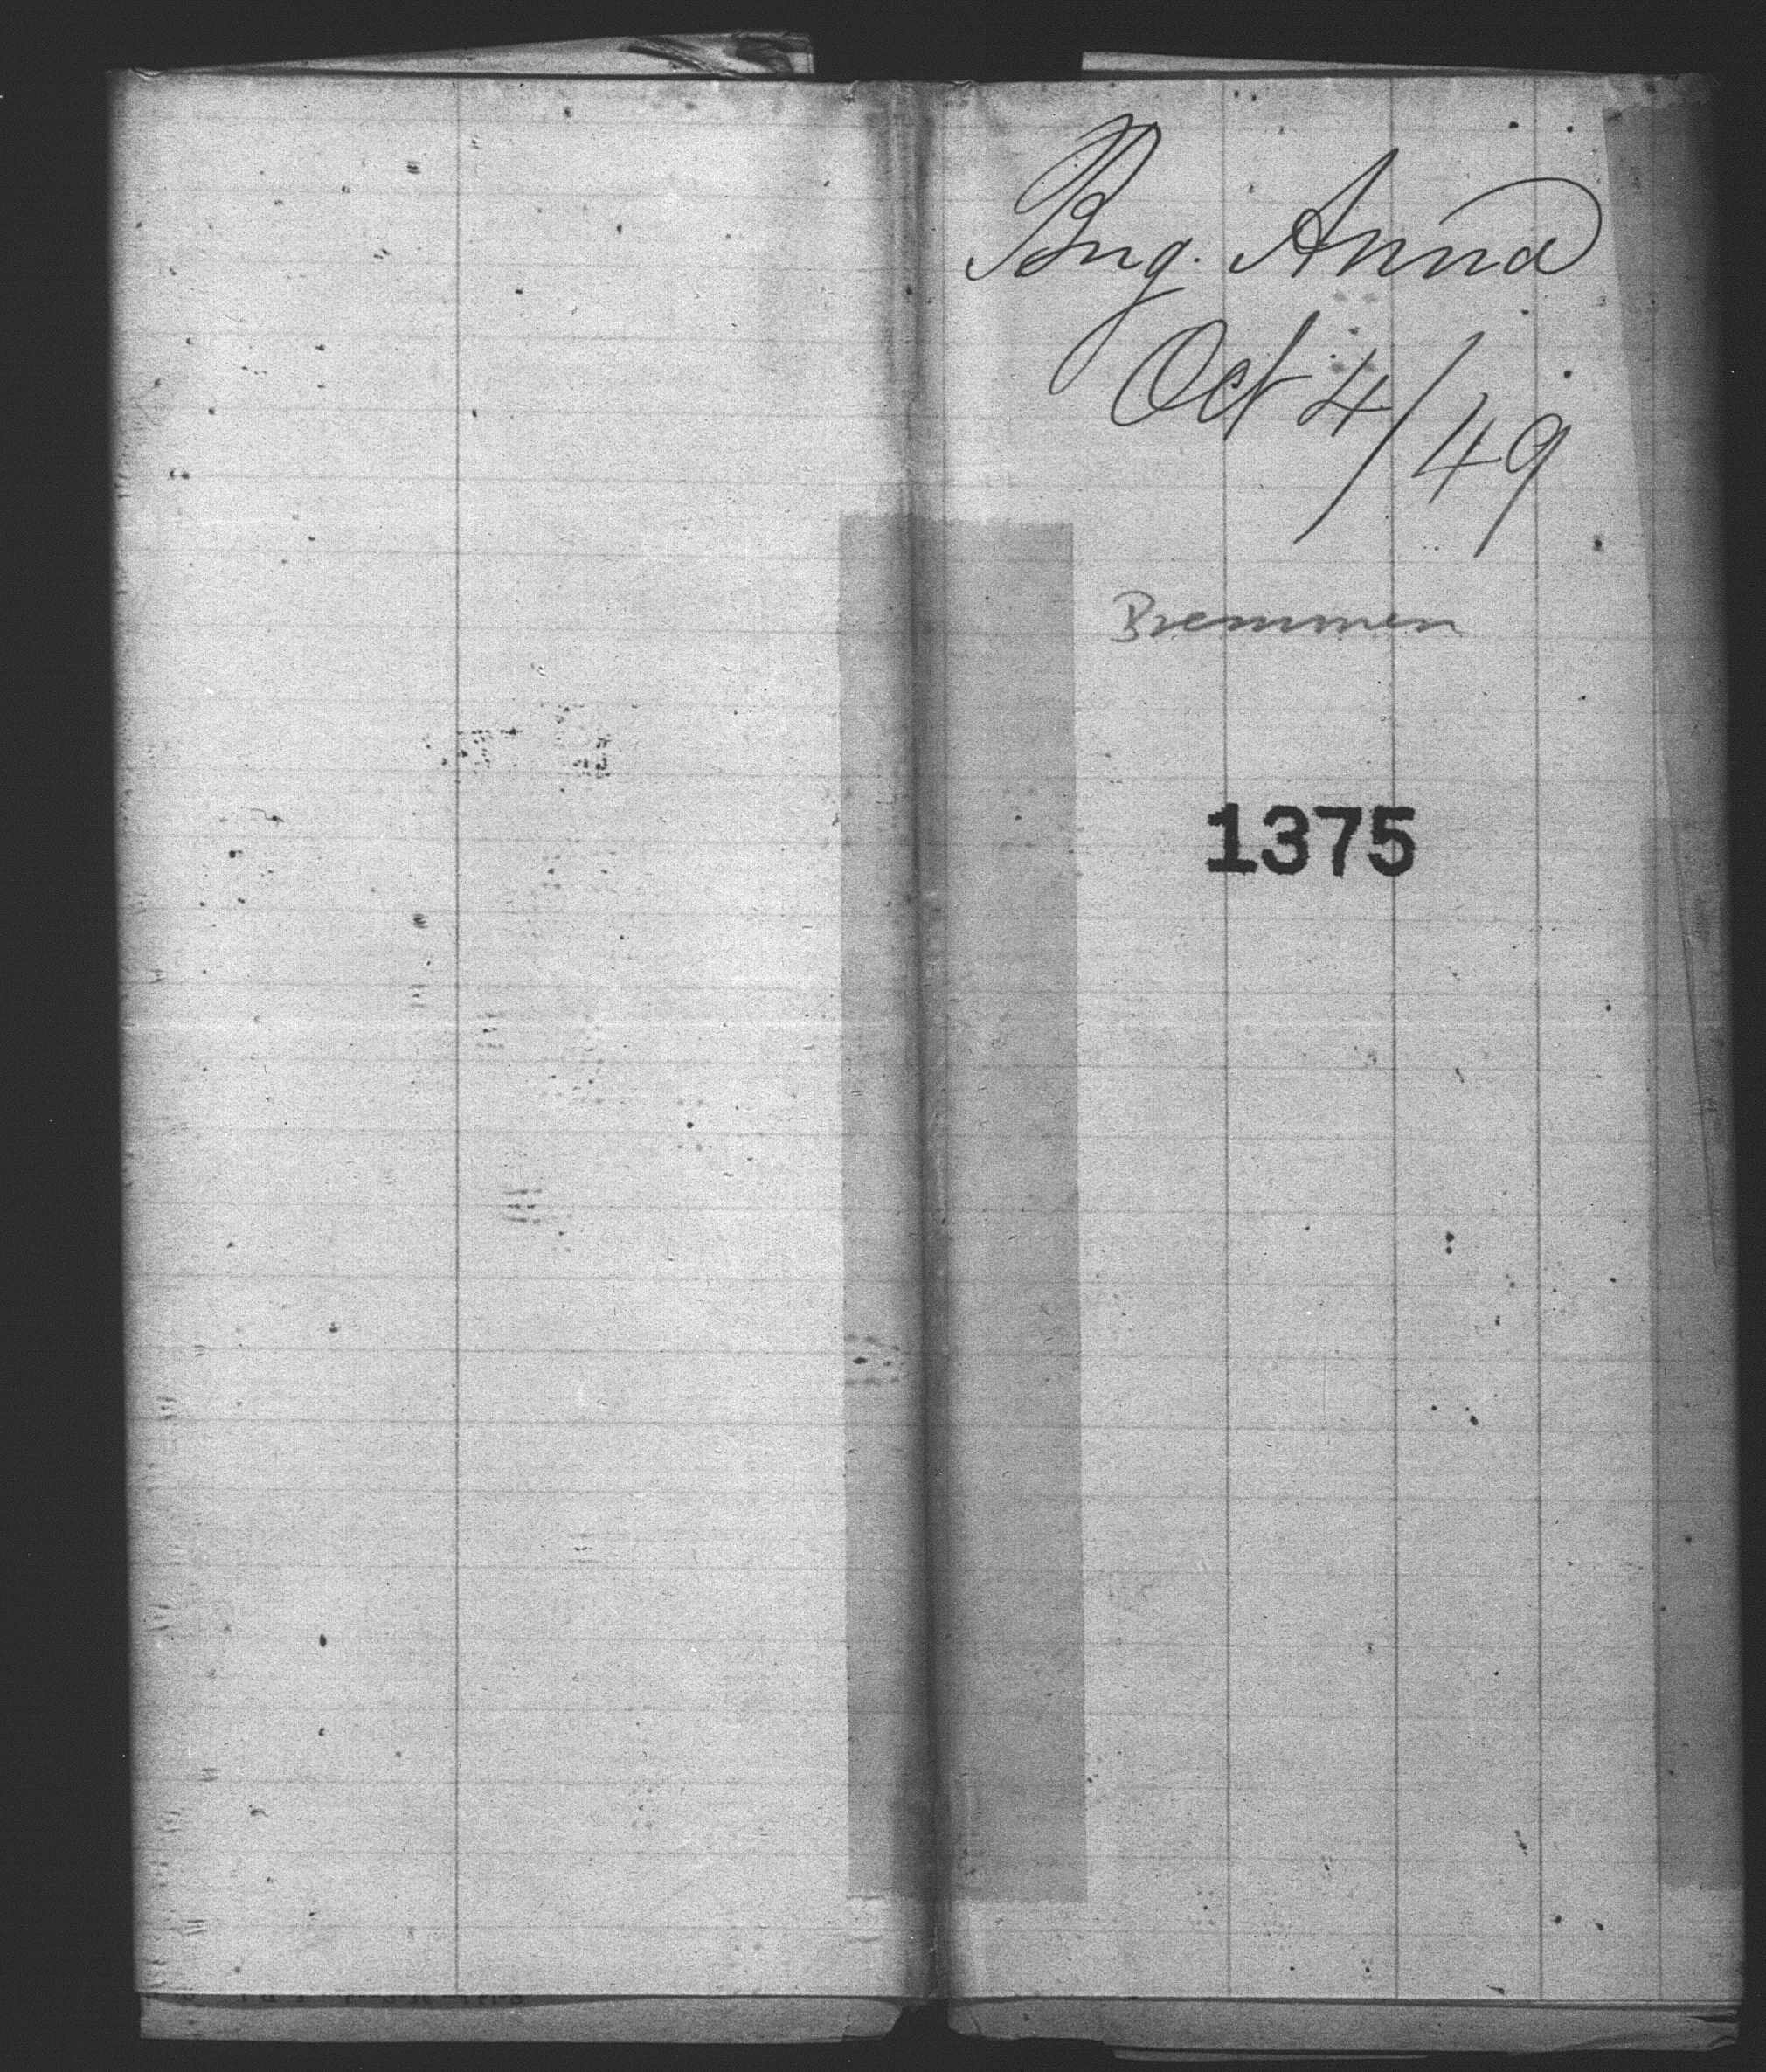 Brig. Anna
Oct 4/49
Bremmen
1375